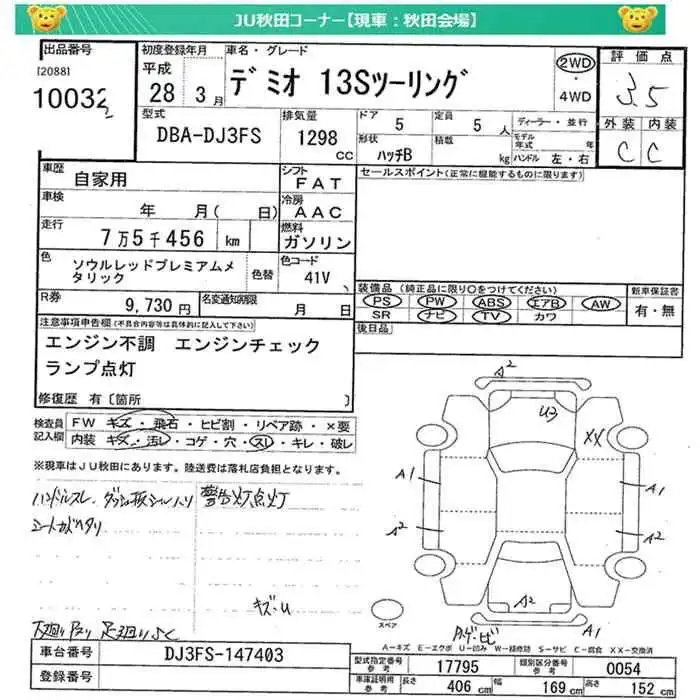 JU秋田コーナー【現車：秋田会場】
出品番号 初度登録年月 車名・グレード 評価点
[2088] 平成 デミオ 13Sツーリング 2WD
10032 28 3月 ・4WD 3.5
型式 排気量 ドア 5 定員 5人 ディーラー・並行 外装 内装
DBA-DJ3FS 1298 cc 形状 ハッチB 積載 kg モデル年式 年 ハンドル 左・右 C C
車歴 自家用 シフト FAT セールスポイント(正常に機能するものに限ります)
車検 年 月( 日) 冷房 AAC
走行 7万5千456 km 燃料 ガソリン
色 ソウルレッドプレミアムメタリック 色替 色コード 41V
装備品(純正品に限り○をつけてください) 新車保証書
R券 9,730円 名変通知期限 月 日 PS PW ABS エアB AW 有・無
SR ナビ TV カワ
注意事項申告欄(不具合内容等は具体的に記入して下さい) 後日品
エンジン不調 エンジンチェック
ランプ点灯
修復歴 有〔箇所
検査員 FW キズ・飛石・ヒビ割・リペア跡・×要
記入欄 内装 キズ・汚レ・コゲ・穴・スレ・キレ・破レ
※現車はJU秋田にあります。陸送費は落札店負担となります。
ハンドルスレ、 警告灯点灯
シートカバヘタリ
キズ・U
下廻り 足廻り
A2
U3
XX
A1
A1
A2
A2
A2
A1
スペア
A-キズ E-エクボ U-凹み W-補修跡 S-サビ C-腐食 XX-交換済
車台番号 DJ3FS-147403
登録番号
型式指定番号 17795 類別区分番号 0054
車庫証明用参考 長さ 406 cm 幅 169 cm 高さ 152 cm